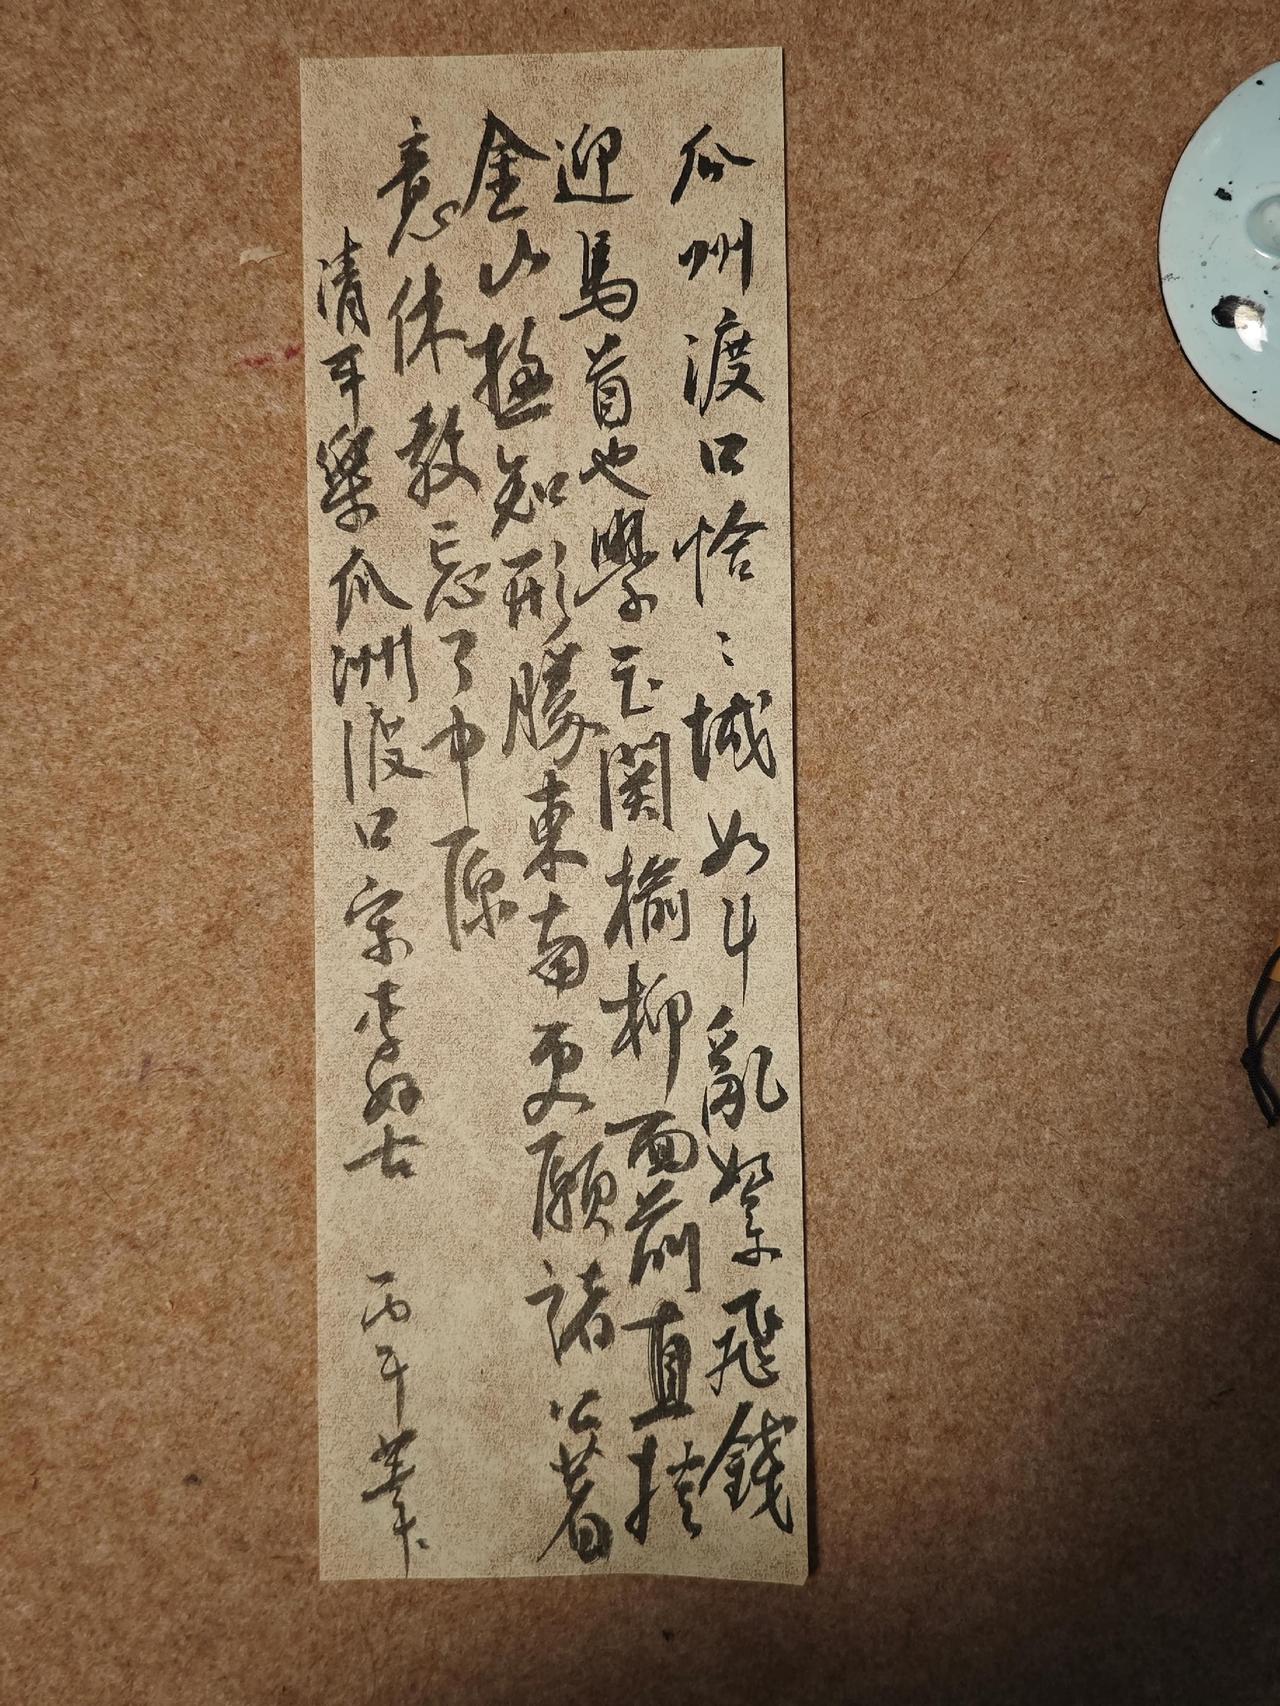 瓜州渡口恰〻城如斗亂絮飛錢
迎馬首也學玉関榆柳面前直控
金山極知形勝東南更願諸公著
意休教忘了中原
清平樂瓜洲渡口宋李好古
丙午華